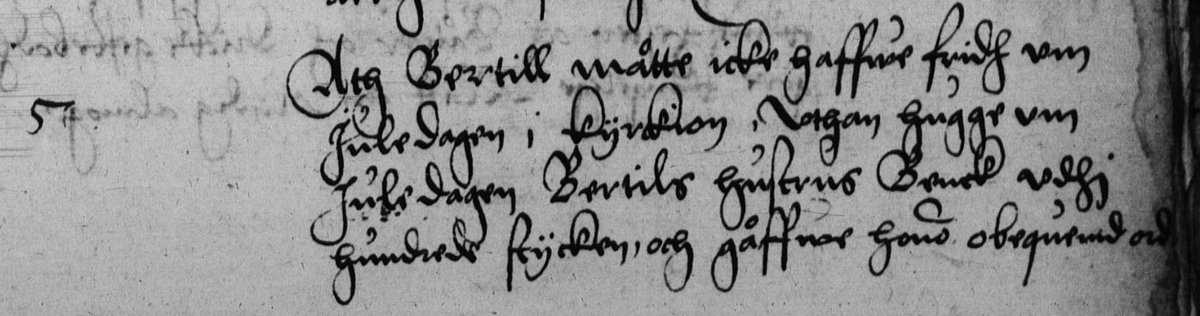 5
Ath Bertill måtte icke haffwe fridh vm
Juledagen i kyrkion, Vthan hugge vm
Juledagen Bertils hustrus Benck vdhj
hundrede stycken, och gåffwe honō obequemd ord